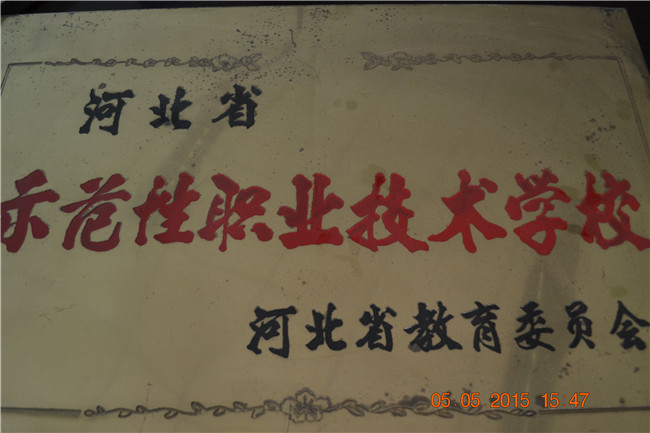 河北省
示范性职业技术学校
河北省教育委员会
05.05.2015 15:47